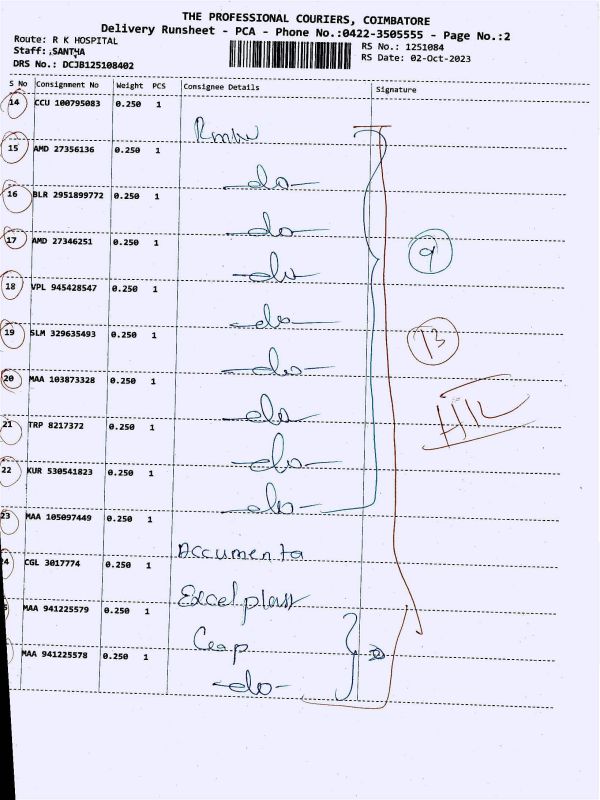 THE PROFESSIONAL COURIERS, COIMBATORE
Delivery Runsheet - PCA - Phone No.:0422-3505555 - Page No.:2
Route: R K HOSPITAL
RS No.: 1251084
Staff: .SANTHA
RS Date: 02-Oct-2023
DRS No.: DCJB125108402
S No Consignment No Weight PCS Consignee Details Signature
14 CCU 100795083 0.250 1
15 AMD 27356136 0.250 1
-do-
16 BLR 2951899772 0.250 1
-do-
17 AMD 27346251 0.250 1
-do-
9
18 VPL 945428547 0.250 1
-do-
19 SLM 329635493 0.250 1
13
-do-
20 MAA 103873328 0.250 1
-do-
21 TRP 8217372 0.250 1
-do-
22 KUR 530541823 0.250 1
-do-
23 MAA 105097449 0.250 1
Accumenta
24 CGL 3017774 0.250 1
Excel plast
MAA 941225579 0.250 1
Ceap
MAA 941225578 0.250 1
-do-